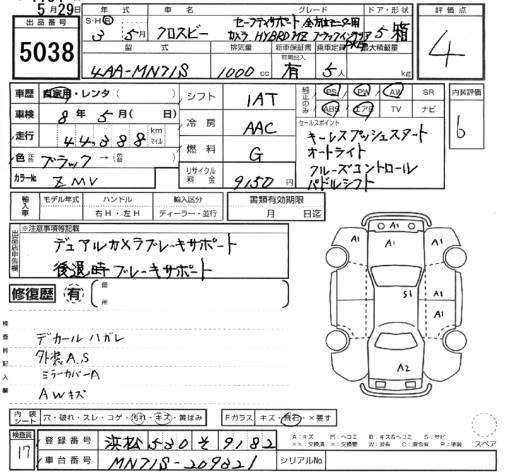 5月29日
出品番号 年式 車名 グレード ドア・形状 評価点
5038
S・H・R 3 5月 クロスビー セーフティサポート 全方位モニター用カメラ HYBRID MZ 5 箱
4
型式 排気量 新車保証書 乗車定員 最大積載量
4AA-MN71S 1000cc 有 5人 kg
車歴 自家用・レンタ( )
車検 8年5月( 日)
走行 44,388 km マイル
色 ブラック →( )
カラーNo. ZMV
シフト IAT
冷房 AAC
燃料 G
リサイクル料金 9150円
純正のみ PS PW AW SR
ABS エアB TV ナビ
内装評価
6
セールスポイント
キーレスプッシュスタート
オートライト
クルーズコントロール
パドルシフト
輸入車 モデル年式 ハンドル 輸入区分
右H・左H ディーラー・並行
書類有効期限
月 日迄
※注意事項等記載
デュアルカメラブレーキサポート
後退時ブレーキサポート
修復歴 有 箇所
検査員記入欄
デカールハガレ
外装A.S
ミラーカバーA
AWキズ
A1 A1 A1
A1
S1 A1
A1
A2
内装シート 穴・破れ・スレ・コゲ・汚れ・キズ・黄ばみ
Fガラス キズ・飛石・×要す
スペア
検査員 17
登録番号 浜松 530 そ 9182
車台番号 MN71S-209821
シリアルNo.
A:キズ U:ヘコミ B:キズ&ヘコミ S:サビ